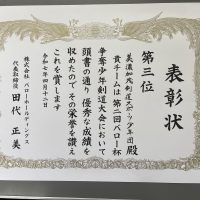 表彰状
第三位
美濃加茂剣道スポーツ少年団殿
貴チームは第二回バロー杯
争奪少年剣道大会において
頭書の通り優秀な成績を
収めたのでその栄誉を讃え
これを賞します
令和七年四月十二日
株式会社バローホールディングス
代表取締役 田代正美